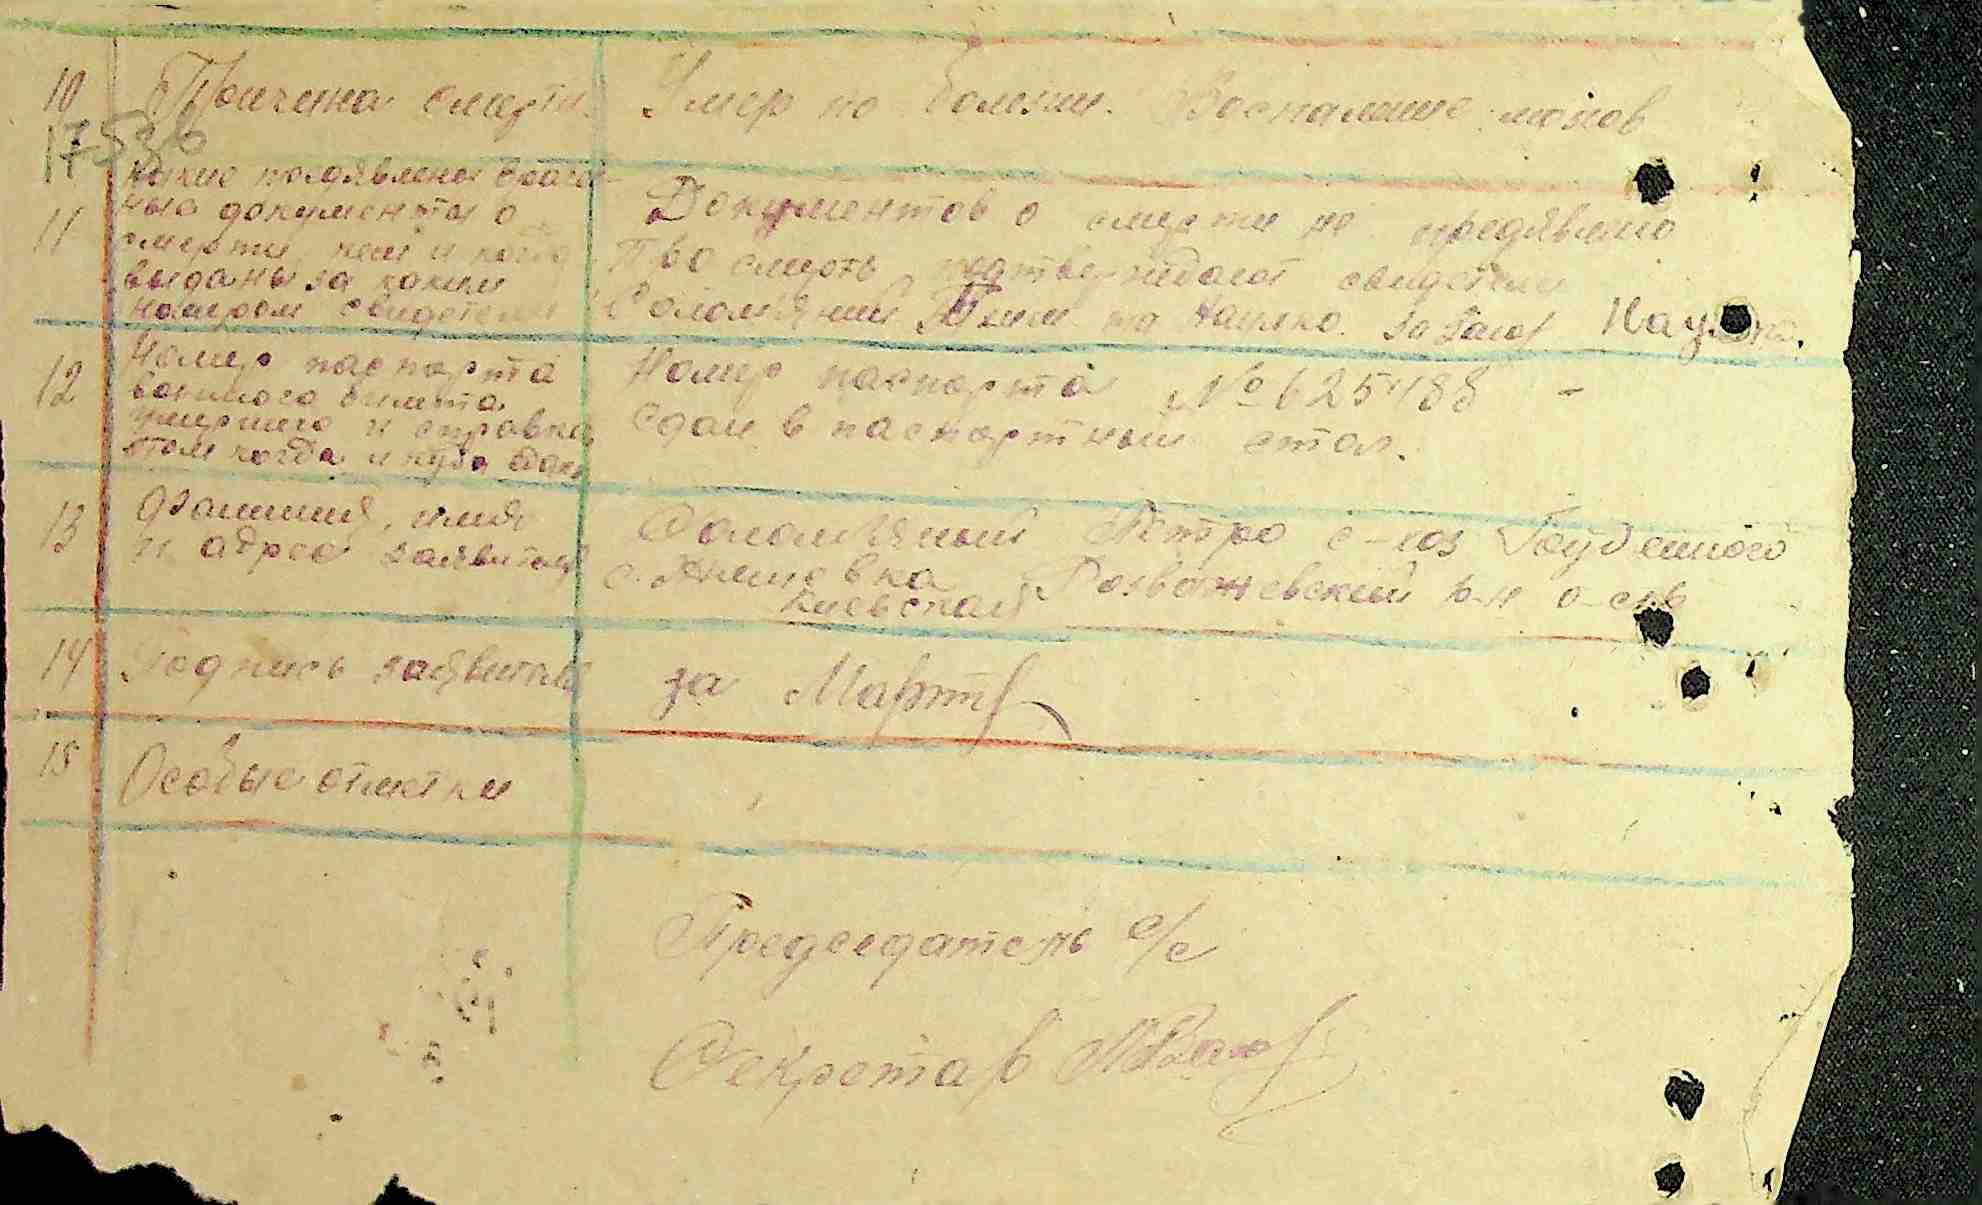 10 Причина смерти. Умер по болезни. Воспаление
17536
какие предявлены врачеб-
ные документы о
11
смерти, кем и когда
выданы за каким
номером свидетели
Документов о смерти не предявлено
Про смерть подтверждают свидетели
Соломяний та Науоко.
12 Номер паспорта
военного билета
умершего и справка
о том когда и куда сдан
Номер паспорта № 625488 -
Сдан в паспортный стол.
13 Фамилия, имя
и адрес заявителя
Соломяный Петро с-хоз Буденного
с. Розважевский р-н о-сть
Киевская
14 Подпись заявителя за Март
15 Особые отметки
Председатель с/с
Секретар